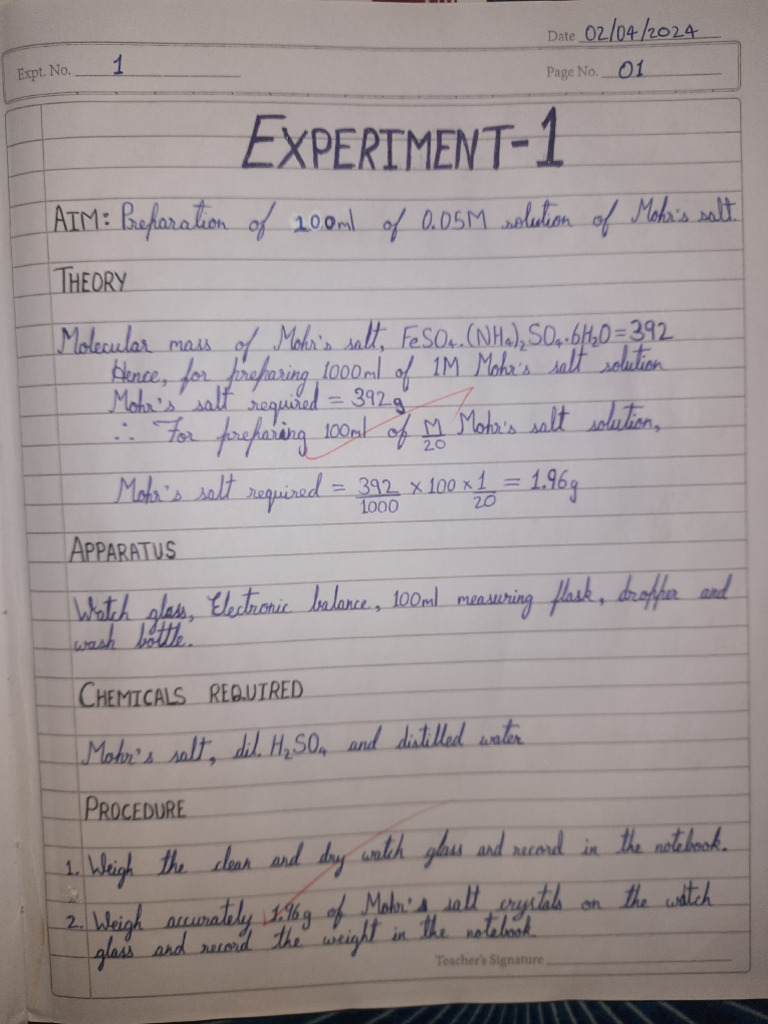 Date 02/04/2024
Expt. No. 1
Page No. 01
EXPERIMENT-1
AIM: Preparation of 100ml of 0.05M solution of Mohr's salt.
THEORY
Molecular mass of Mohr's salt, FeSO₄.(NH₄)₂SO₄.6H₂O=392
Hence, for preparing 1000ml of 1M Mohr's salt solution
Mohr's salt required = 392g
∴ For preparing 100ml of M/20 Mohr's salt solution,
Mohr's salt required = 392/1000 × 100 × 1/20 = 1.96g
APPARATUS
Watch glass, Electronic balance, 100ml measuring flask, dropper and
wash bottle.
CHEMICALS REQUIRED
Mohr's salt, dil. H₂SO₄ and distilled water
PROCEDURE
1. Weigh the clean and dry watch glass and record in the notebook.
2. Weigh accurately 1.96g of Mohr's salt crystals on the watch
glass and record the weight in the notebook
Teacher's Signature